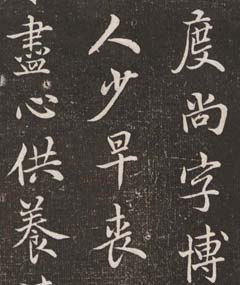 度尚字博
人少早丧
盡心供養